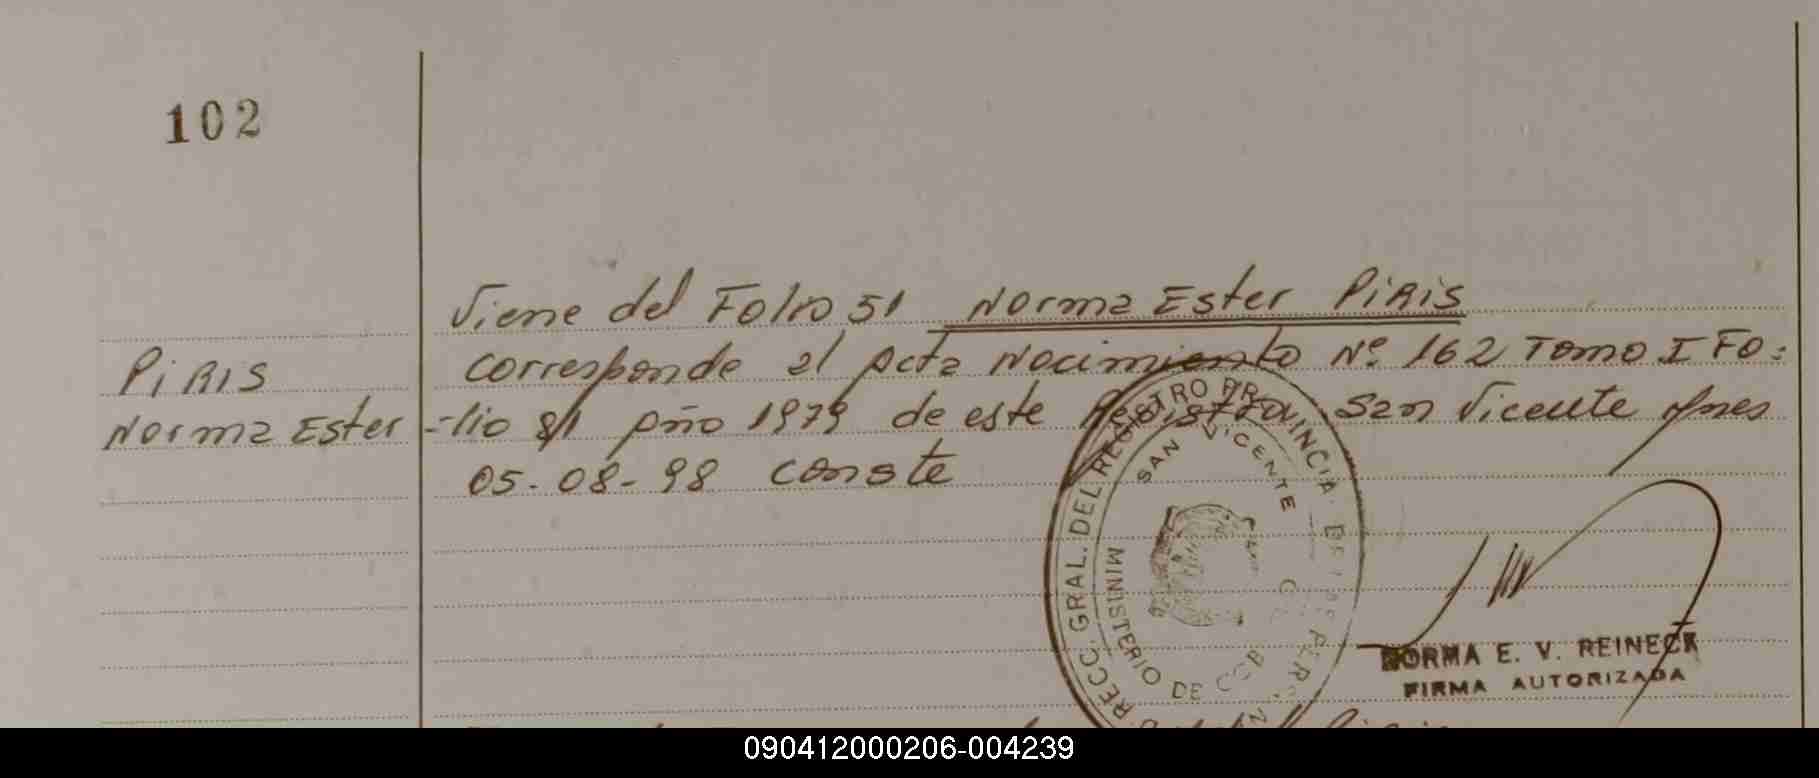 102
Viene del Folio 51 Norma Ester Piris
PiRiS
Norma Ester
corresponde al Acta Nacimiento Nº 162 Tomo I Fo-
-lio 81 Año 1979 de este Registro, San Vicente Mnes
05-08-98 conste
RECC GRAL. DEL REGISTRO PROVINCIAL DE LAS PERS
SAN VICENTE
MINISTERIO DE GOB
NORMA E. V. REINECK
FIRMA AUTORIZADA
090412000206-004239